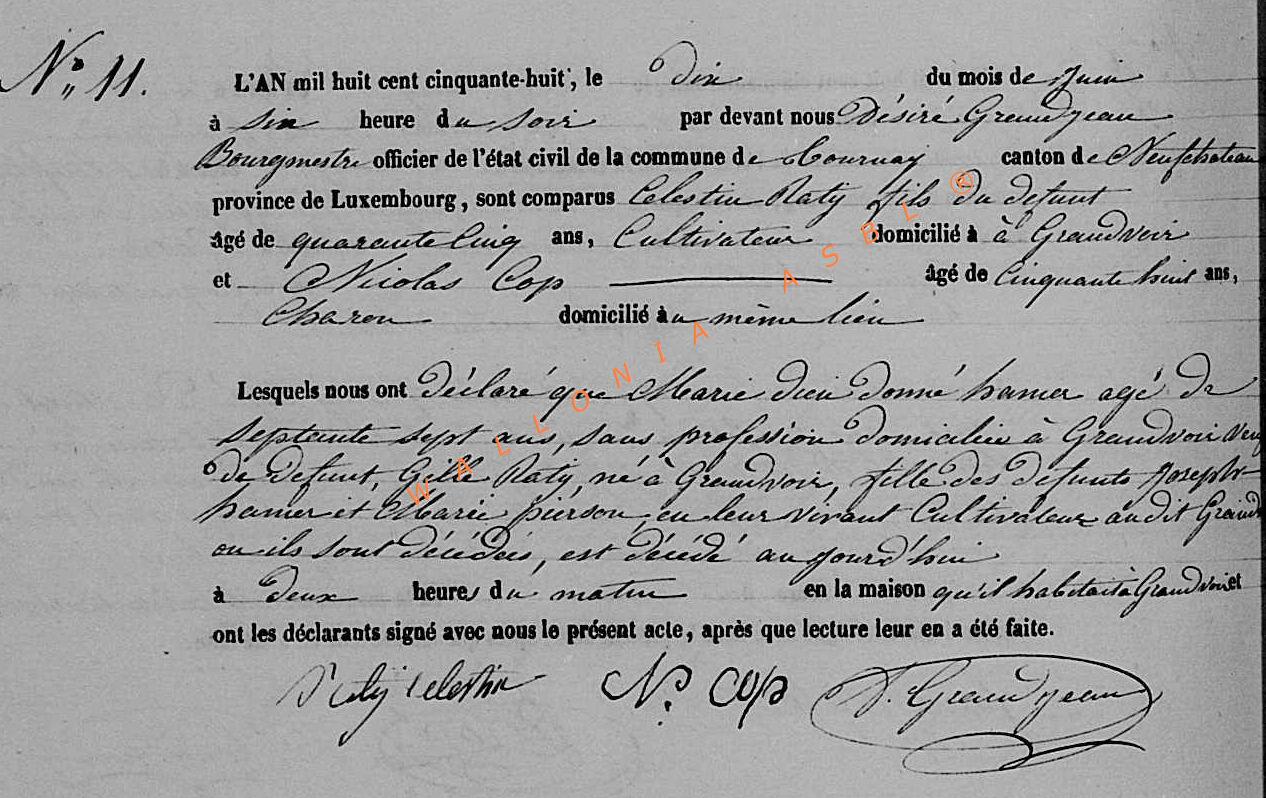 N° 11.
L'AN mil huit cent cinquante-huit, le dix du mois de Juin
à six heure du soir par devant nous Désiré Grandjean
Bourgmestre officier de l'état civil de la commune de Tournay canton de Neufchateau
province de Luxembourg, sont comparus Celestin Raty fils du defunt
âgé de quarante Cinq ans, Cultivateur domicilié à à Grandvoir
et Nicolas Cop âgé de Cinquante huit ans,
Charon domicilié au même lieu
Lesquels nous ont déclaré que Marie dieu donné hamer agé de
septante sept ans, sans profession domiciliée à Grandvoir veuf
de defunt, Gille Raty, né à Grandvoir, fille des defunts Joseph
hamer et Marie pierson, en leur vivant Cultivateur audit Grand
ou ils sont décédés, est décédé aujourd'hui
à deux heures du matin en la maison qu'il habitait à Grandvoir et
ont les déclarants signé avec nous le présent acte, après que lecture leur en a été faite.
Raty Celestin N. Cop D. Grandjean
WALLONIA ASBL ®